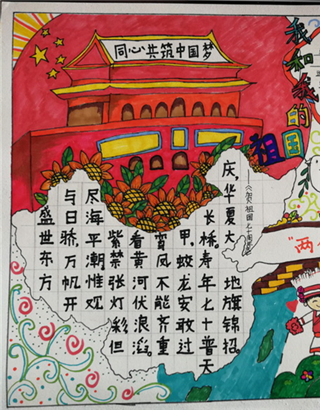 同心共筑中国梦
我和我的
祖国
盛世东方
与日骄，万帆开
尽海平潮惟叹
紫禁张灯彩但
看黄河伏浪滔。
凤不能齐重
甲，蛟龙安敢过
长桥，寿年七十普天
庆华夏大地旗锦招。
——《贺祖国七十周年》
“两